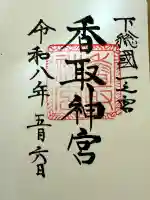 下総國一之宮
香取神宮
令和八年五月六日